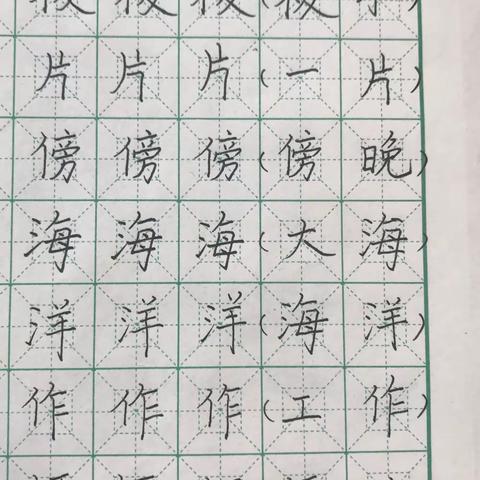 片片片(一片)
傍傍傍(傍晚)
海海海(大海)
洋洋洋(海洋)
作作作(工作)